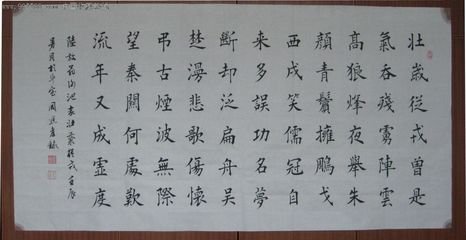 壯歲從戎曾是
氣吞殘虜陣雲
高狼烽夜舉朱
顏青鬢擁鵰戈
西戍笑儒冠自
来多誤功名夢
斷却泛扁舟吳
楚漫悲歌傷懷
弔古煙波無際
望秦關何處歎
流年又成虛度
陸放翁謝池春壯歲從戎壬辰
夏月於